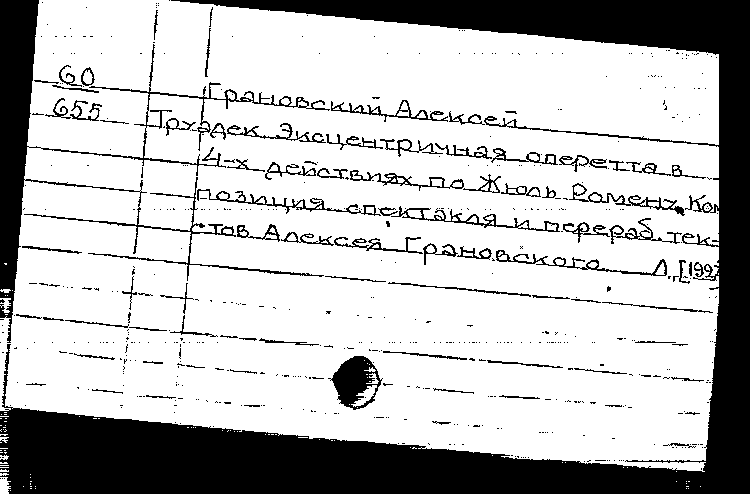 60
655
Грановский, Алексей
Труадек. Эксцентричная оперетта в
4-х действиях, по Жюль Ромену. Ком
позиция спектакля и перераб. тек-
стов Алексея Грановского. Л., [1927